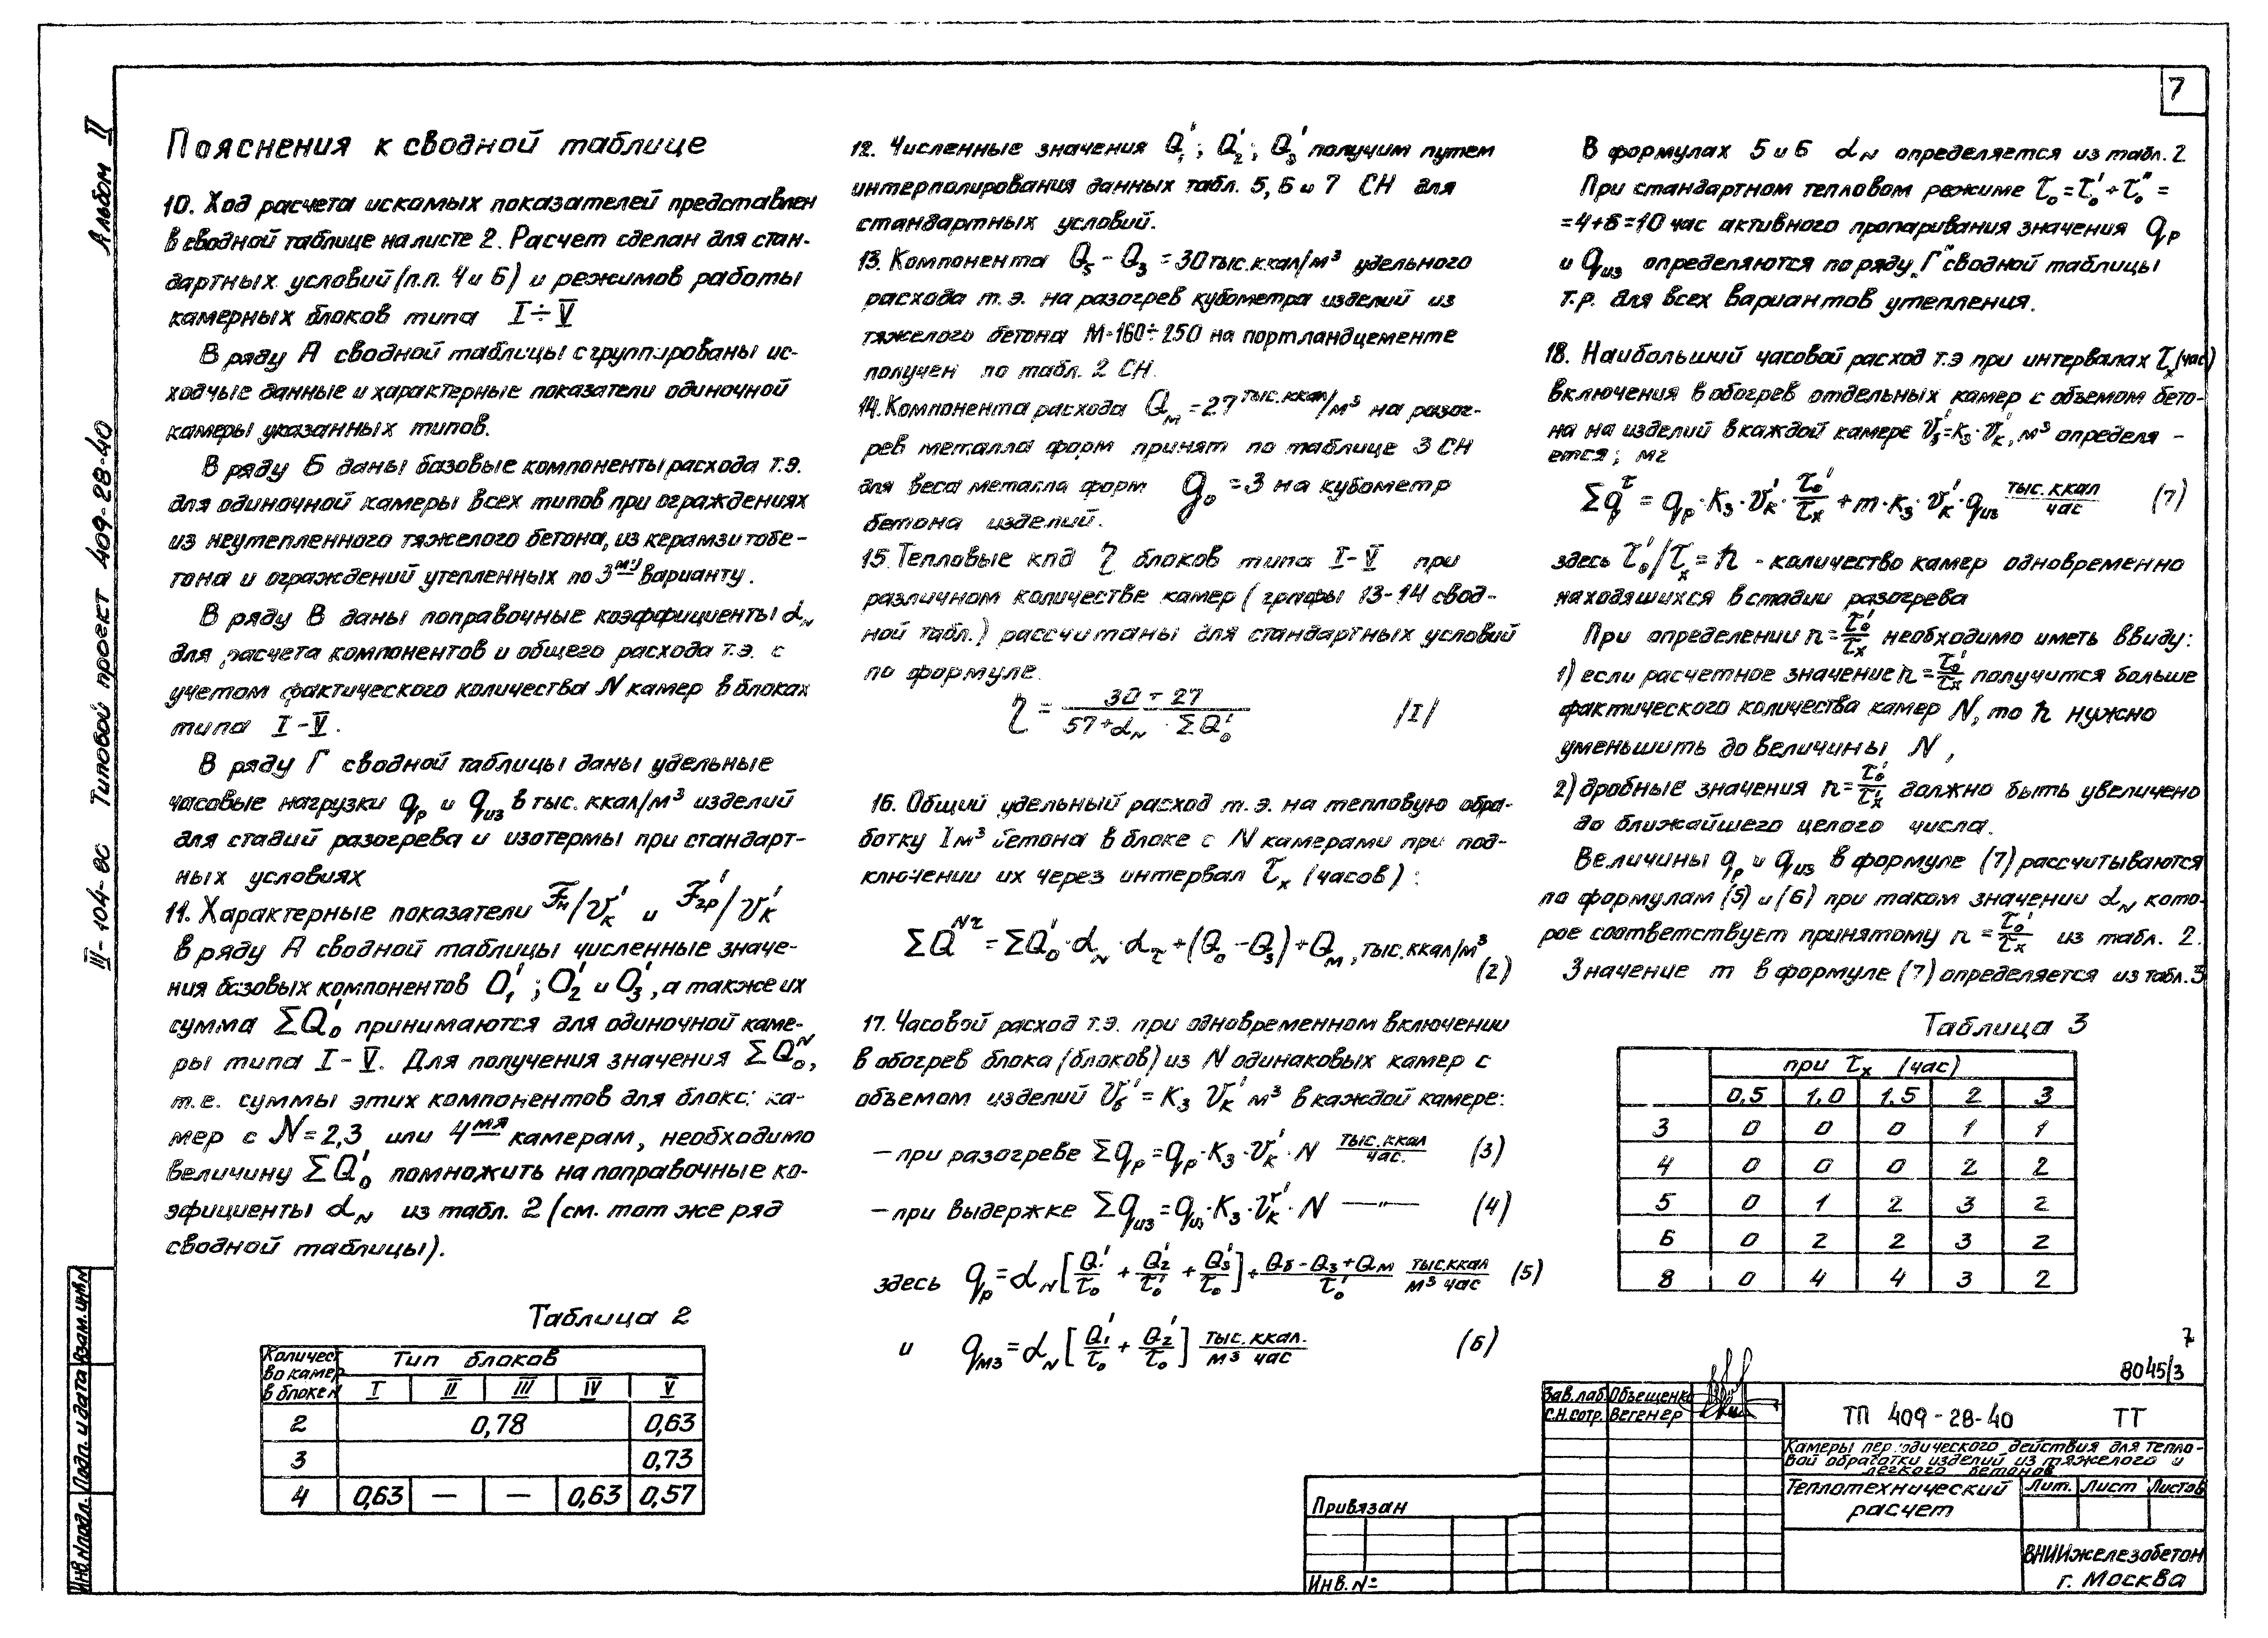 7
Альбом II
Типовой проект 409-28-40
III-104-8С
Пояснения к сводной таблице
10. Ход расчета искомых показателей представлен
в сводной таблице на листе 2. Расчет сделан для стан-
дартных условий (п.п. 4 и 6) и режимов работы
камерных блоков типа I÷V
В ряду А сводной таблицы сгруппированы ис-
ходные данные и характерные показатели одиночной
камеры указанных типов.
В ряду Б даны базовые компоненты расхода т.э.
для одиночной камеры всех типов при ограждениях
из неутепленного тяжелого бетона, из керамзитобе-
тона и ограждений утепленных по 3му варианту.
В ряду В даны поправочные коэффициенты αN
для расчета компонентов и общего расхода т.э. с
учетом фактического количества N камер в блоках
типа I-V.
В ряду Г сводной таблицы даны удельные
часовые нагрузки qр и qиз в тыс. ккал/м³ изделий
для стадий разогрева и изотермы при стандарт-
ных условиях
11. Характерные показатели Fн/Vк' и Fгр'/Vк'
в ряду А сводной таблицы численные значе-
ния базовых компонентов Q₁'; Q₂' и Q₃', а также их
сумма ΣQ₀' принимаются для одиночной каме-
ры типа I-V. Для получения значения ΣQ₀ᴺ,
т.е. суммы этих компонентов для блокс: ка-
мер с N=2,3 или 4мя камерам, необходимо
величину ΣQ₀' помножить на поправочные ко-
эфициенты αN из табл. 2 (см. тот же ряд
сводной таблицы).
Таблица 2
Количест- Тип блоков
во камер
в блоке N I II III IV V
2 0,78 0,63
3 0,73
4 0,63 — — 0,63 0,57
12. Численные значения Q₁'; Q₂'; Q₃' получим путем
интерполирования данных табл. 5, 6 и 7 СН для
стандартных условий.
13. Компонента Q₅ - Q₃ = 30 тыс.ккал/м³ удельного
расхода т.э. на разогрев кубометра изделий из
тяжелого бетона М-160÷250 на портландцементе
получен по табл. 2 СН.
14. Компонента расхода Qм = 27 тыс.ккал/м³ на разог-
рев металла форм принят по таблице 3 СН
для веса металла форм g₀ = 3 на кубометр
бетона изделий.
15. Тепловые кпд η блоков типа I-V при
различном количестве камер (графы 13-14 свод-
ной табл.) рассчитаны для стандартных условий
по формуле.
η = 30 + 27 / 57 + αN · ΣQ₀' /I/
16. Общий удельный расход т.э. на тепловую обра-
ботку 1м³ бетона в блоке с N камерами при под-
ключении их через интервал τx (часов):
ΣQᴺᵗ = ΣQ₀' · αN · ατ + (Q₀ - Q₃) + Qм, тыс.ккал/м³
(2)
17. Часовой расход т.э. при одновременном включении
в обогрев блока (блоков) из N одинаковых камер с
объемом изделий Vб' = Kз Vк' м³ в каждой камере:
— при разогреве Σqр = qр · Kз · Vк' · N тыс.ккал/час. (3)
— при выдержке Σqиз = qиз · Kз · Vк' · N —"— (4)
здесь qр = αN [Q₁'/τ₀ + Q₂'/τ₀' + Q₃'/τ₀] + Qб - Qз + Qм/τ₀' тыс.ккал/м³ час (5)
и qиз = αN [Q₁'/τ₀ + Q₂'/τ₀] тыс.ккал./м³ час (6)
В формулах 5 и 6 αN определяется из табл. 2
При стандартном тепловом режиме τ₀ = τ₀' + τ₀" =
=4+6=10 час активного пропаривания значения qр
и qиз определяются по ряду "Г" сводной таблицы
т.р. для всех вариантов утепления.
18. Наибольший часовой расход т.э при интервалах τx (час)
включения в обогрев отдельных камер с объемом бето-
на на изделий в каждой камере Vз' = Kз · Vк', м³ определя-
ется; мг
Σqᵗ = qр · Kз · Vк' · τ₀'/τx + m · Kз · Vк' · qиз тыс.ккал/час (7)
здесь τ₀'/τx = n - количество камер одновременно
находяшихся в стадии разогрева
При определении n = τ₀'/τx необходимо иметь ввиду:
1) если расчетное значение n = τ₀'/τx получится больше
фактического количества камер N, то n нужно
уменьшить до величины N,
2) дробные значения n = τ₀'/τx должно быть увеличено
до ближайшего целого числа.
Величины qр и qиз в формуле (7) рассчитываются
по формулам (5) и (6) при таком значении αN кото-
рое соответствует принятому n = τ₀'/τx из табл. 2.
Значение m в формуле (7) определяется из табл. 3
Таблица 3
при τx (час)
0,5 1,0 1,5 2 3
3 0 0 0 1 1
4 0 0 0 2 2
5 0 1 2 3 2
6 0 2 2 3 2
8 0 4 4 3 2
7
8045/3
Зав.лаб. Объещенко
С.Н.сотр. Вегенер
ТП 409-28-40 ТТ
Камеры периодического действия для тепло-
вой обработки изделий из тяжелого и
легкого бетонов
Теплотехнический
расчет
Лит. Лист Листов
ВНИИжелезобетон
г. Москва
Привязан
Инв. №
Взам. инв. №
Подп. и дата
Инв. № подл.